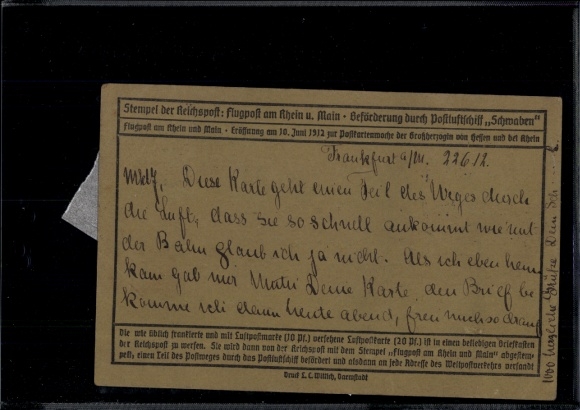 Stempel der Reichspost: Flugpost am Rhein u. Main · Beförderung durch Postluftschiff „Schwaben"
Flugpost am Rhein und Main · Eröffnung am 10. Juni 1912 zur Postkartenwoche der Großherzogin von Hessen und bei Rhein
Frankfurt a/M. 22 6 12.
Diese Karte geht einen Teil des Weges durch
die Luft, dass sie so schnell ankommt wie mit
der Bahn glaub ich ja nicht. Als ich eben heim
kam gab mir Deine Karte. den Brief be
komme ich dann heute abend, freu mich so drauf
1000 herzliche Grüße Dein
Die wie üblich frankierte und mit Luftpostmarke (10 Pf.) versehene Luftpostkarte (20 Pf.) ist in einen beliebigen Briefkasten
der Reichspost zu werfen. Sie wird dann von der Reichspost mit dem Stempel „Flugpost am Rhein und Main" abgestem-
pelt, einen Teil des Postweges durch das Postluftschiff befördert und alsdann an jede Adresse des Weltpostverkehrs versandt
Druck L. C. Wittich, Darmstadt